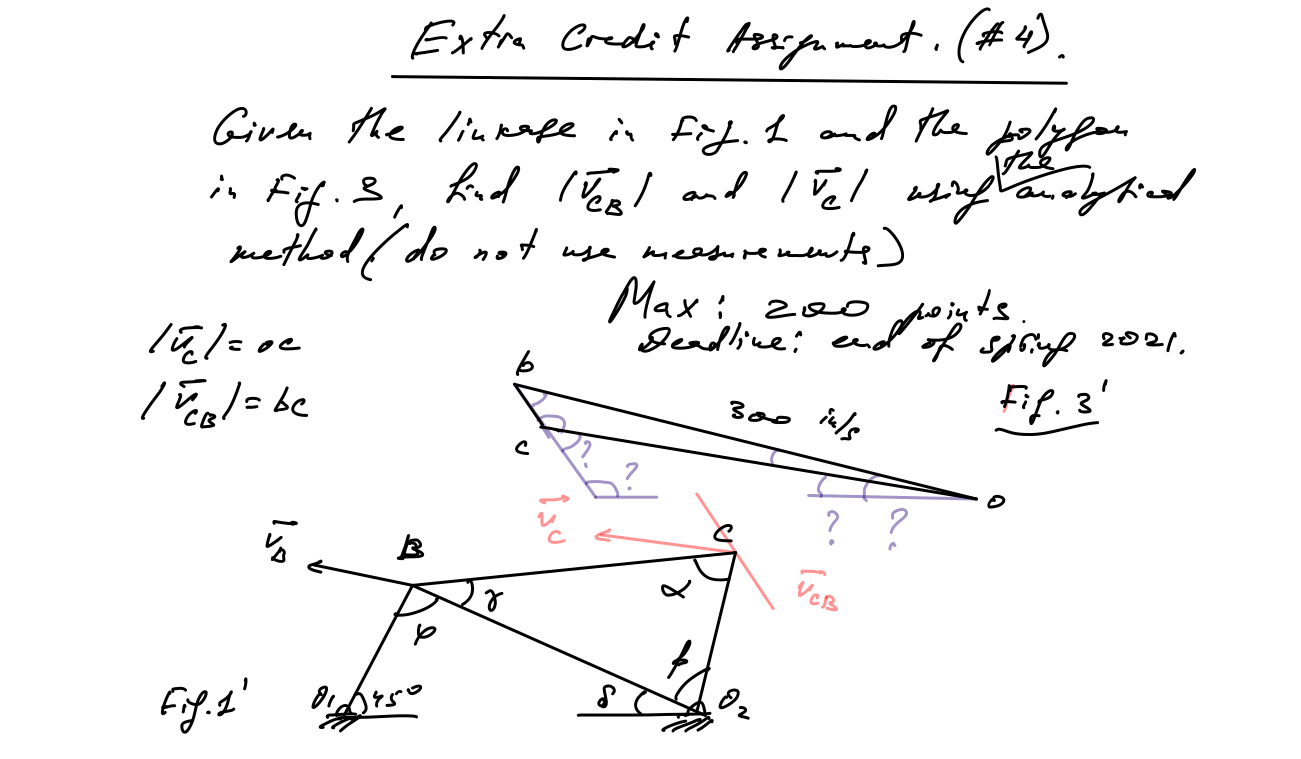 Extra Credit Assignment. (#4).
Given the linkage in Fig. 1 and the polygon
in Fig. 3, find |V_CB| and |V_C| using the analytical
method (do not use measurements)
Max: 200 points.
Deadline: end of spring 2021.
|V_C| = oc
|V_CB| = bc
Fig. 3'
b
300 in/s
c
?
?
o
?
?
V_C
V_B
B
C
γ
α
V_CB
φ
β
Fig. 1'
O1
45°
δ
O2